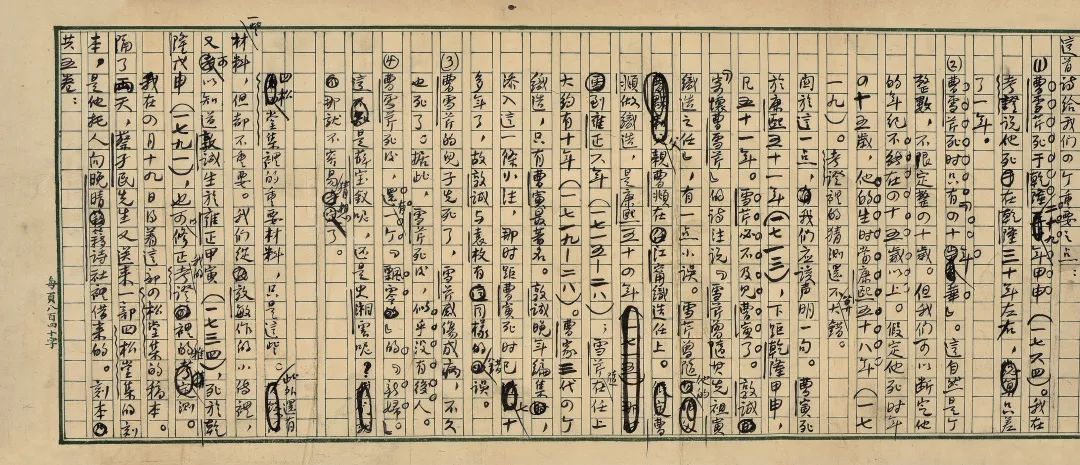 這首诗给我们の个重要之点：
(1) 曹雪芹死于乾隆二十九年甲申（一七六四）。我在
考證说他死在乾隆三十年左右，只差
了一年。
(2) 曹雪芹死时只有「の十年華」。這自然是个
整數，不限定整の十歲。但我们可以断定他
的年纪不能在の十五歲以上。假定他死时年
の十五歲，他的生时当康熙五十八年（一七
一九）。考證裡的猜测還不算大錯。
関於这一点，我们应该声明一句。曹寅死
於康熙五十一年（一七一三），下距乾隆甲申，
凡五十一年。雪芹必不及見曹寅了。敦誠
寄懷曹雪芹」的诗注说「雪芹曾隨其先祖寅
織造之任」，有一点小誤。雪芹曾隨他的父
親曹頫在江甯織造任上。曹
頫做織造，是康熙五十の年
到雍正六年（一七一五—二八）；雪芹隨在任上
大約有十年（一七一九—二八）。曹家三代の个
織造，只有曹寅最著名。敦誠晚年編集，
添入這一條小注，那时距曹寅死时已七十
多年了，故敦誠与袁枚有同樣的錯誤。
(3) 曹雪芹的兒子先死了，雪芹感傷成病，不久
也死了。据此，雪芹死後，似乎没有後人。
(4) 曹雪芹死後，還有一个「飄零」的「新婦」。
這是薛宝釵呢，还是史湘雲呢？
那就不容易猜想了。
四松堂集裡的重要材料，只是這些。此外還有一些
材料，但却不重要。我们從敦敏作的小傳裡，
又可以知道敦誠生於雍正甲寅（一七三四），死於乾
隆戊申（一七九一），也可以修正我的考證裡的推测。
我在の月十九日得着這部の松堂集的稿本。
隔了两天，蔡孑民先生又送来一部四松堂集的刻
本，是他托人向晚晴簃詩社裡借来的。刻本
共五卷：
每頁八百四十字